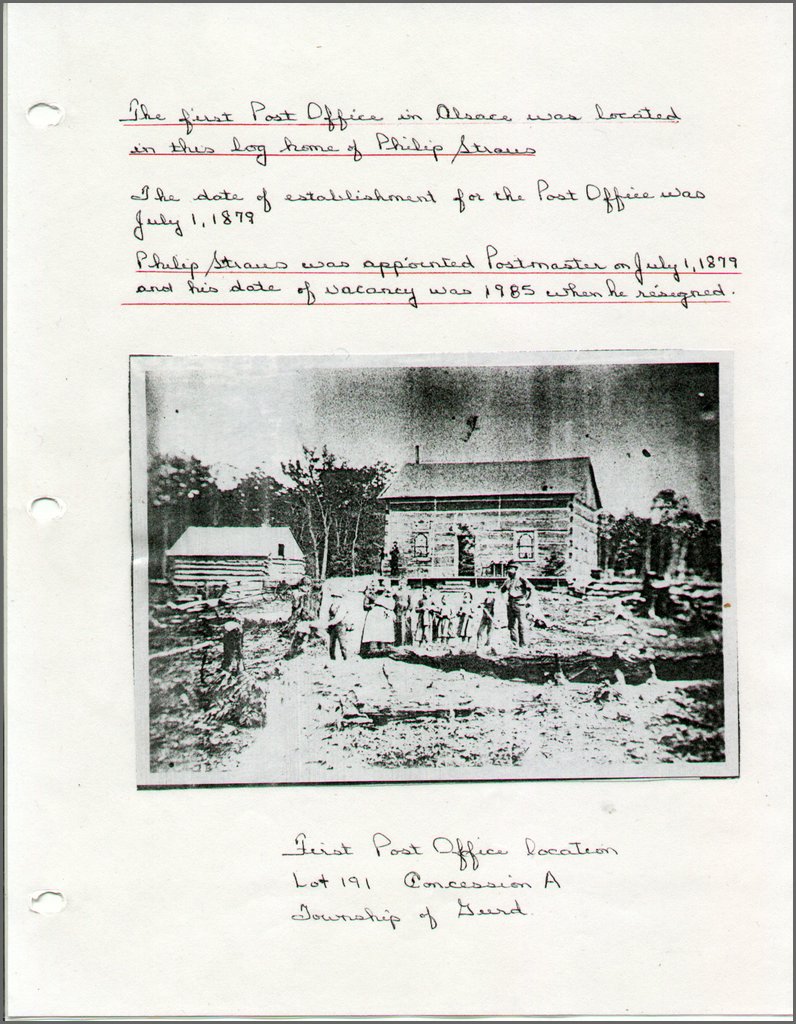 The first Post Office in Alsace was located
in this log home of Philip Straus
The date of establishment for the Post Office was
July 1, 1879
Philip Straus was appointed Postmaster on July 1, 1879
and his date of vacancy was 1985 when he resigned.
First Post Office location
Lot 191 Concession A
Township of Gurd.